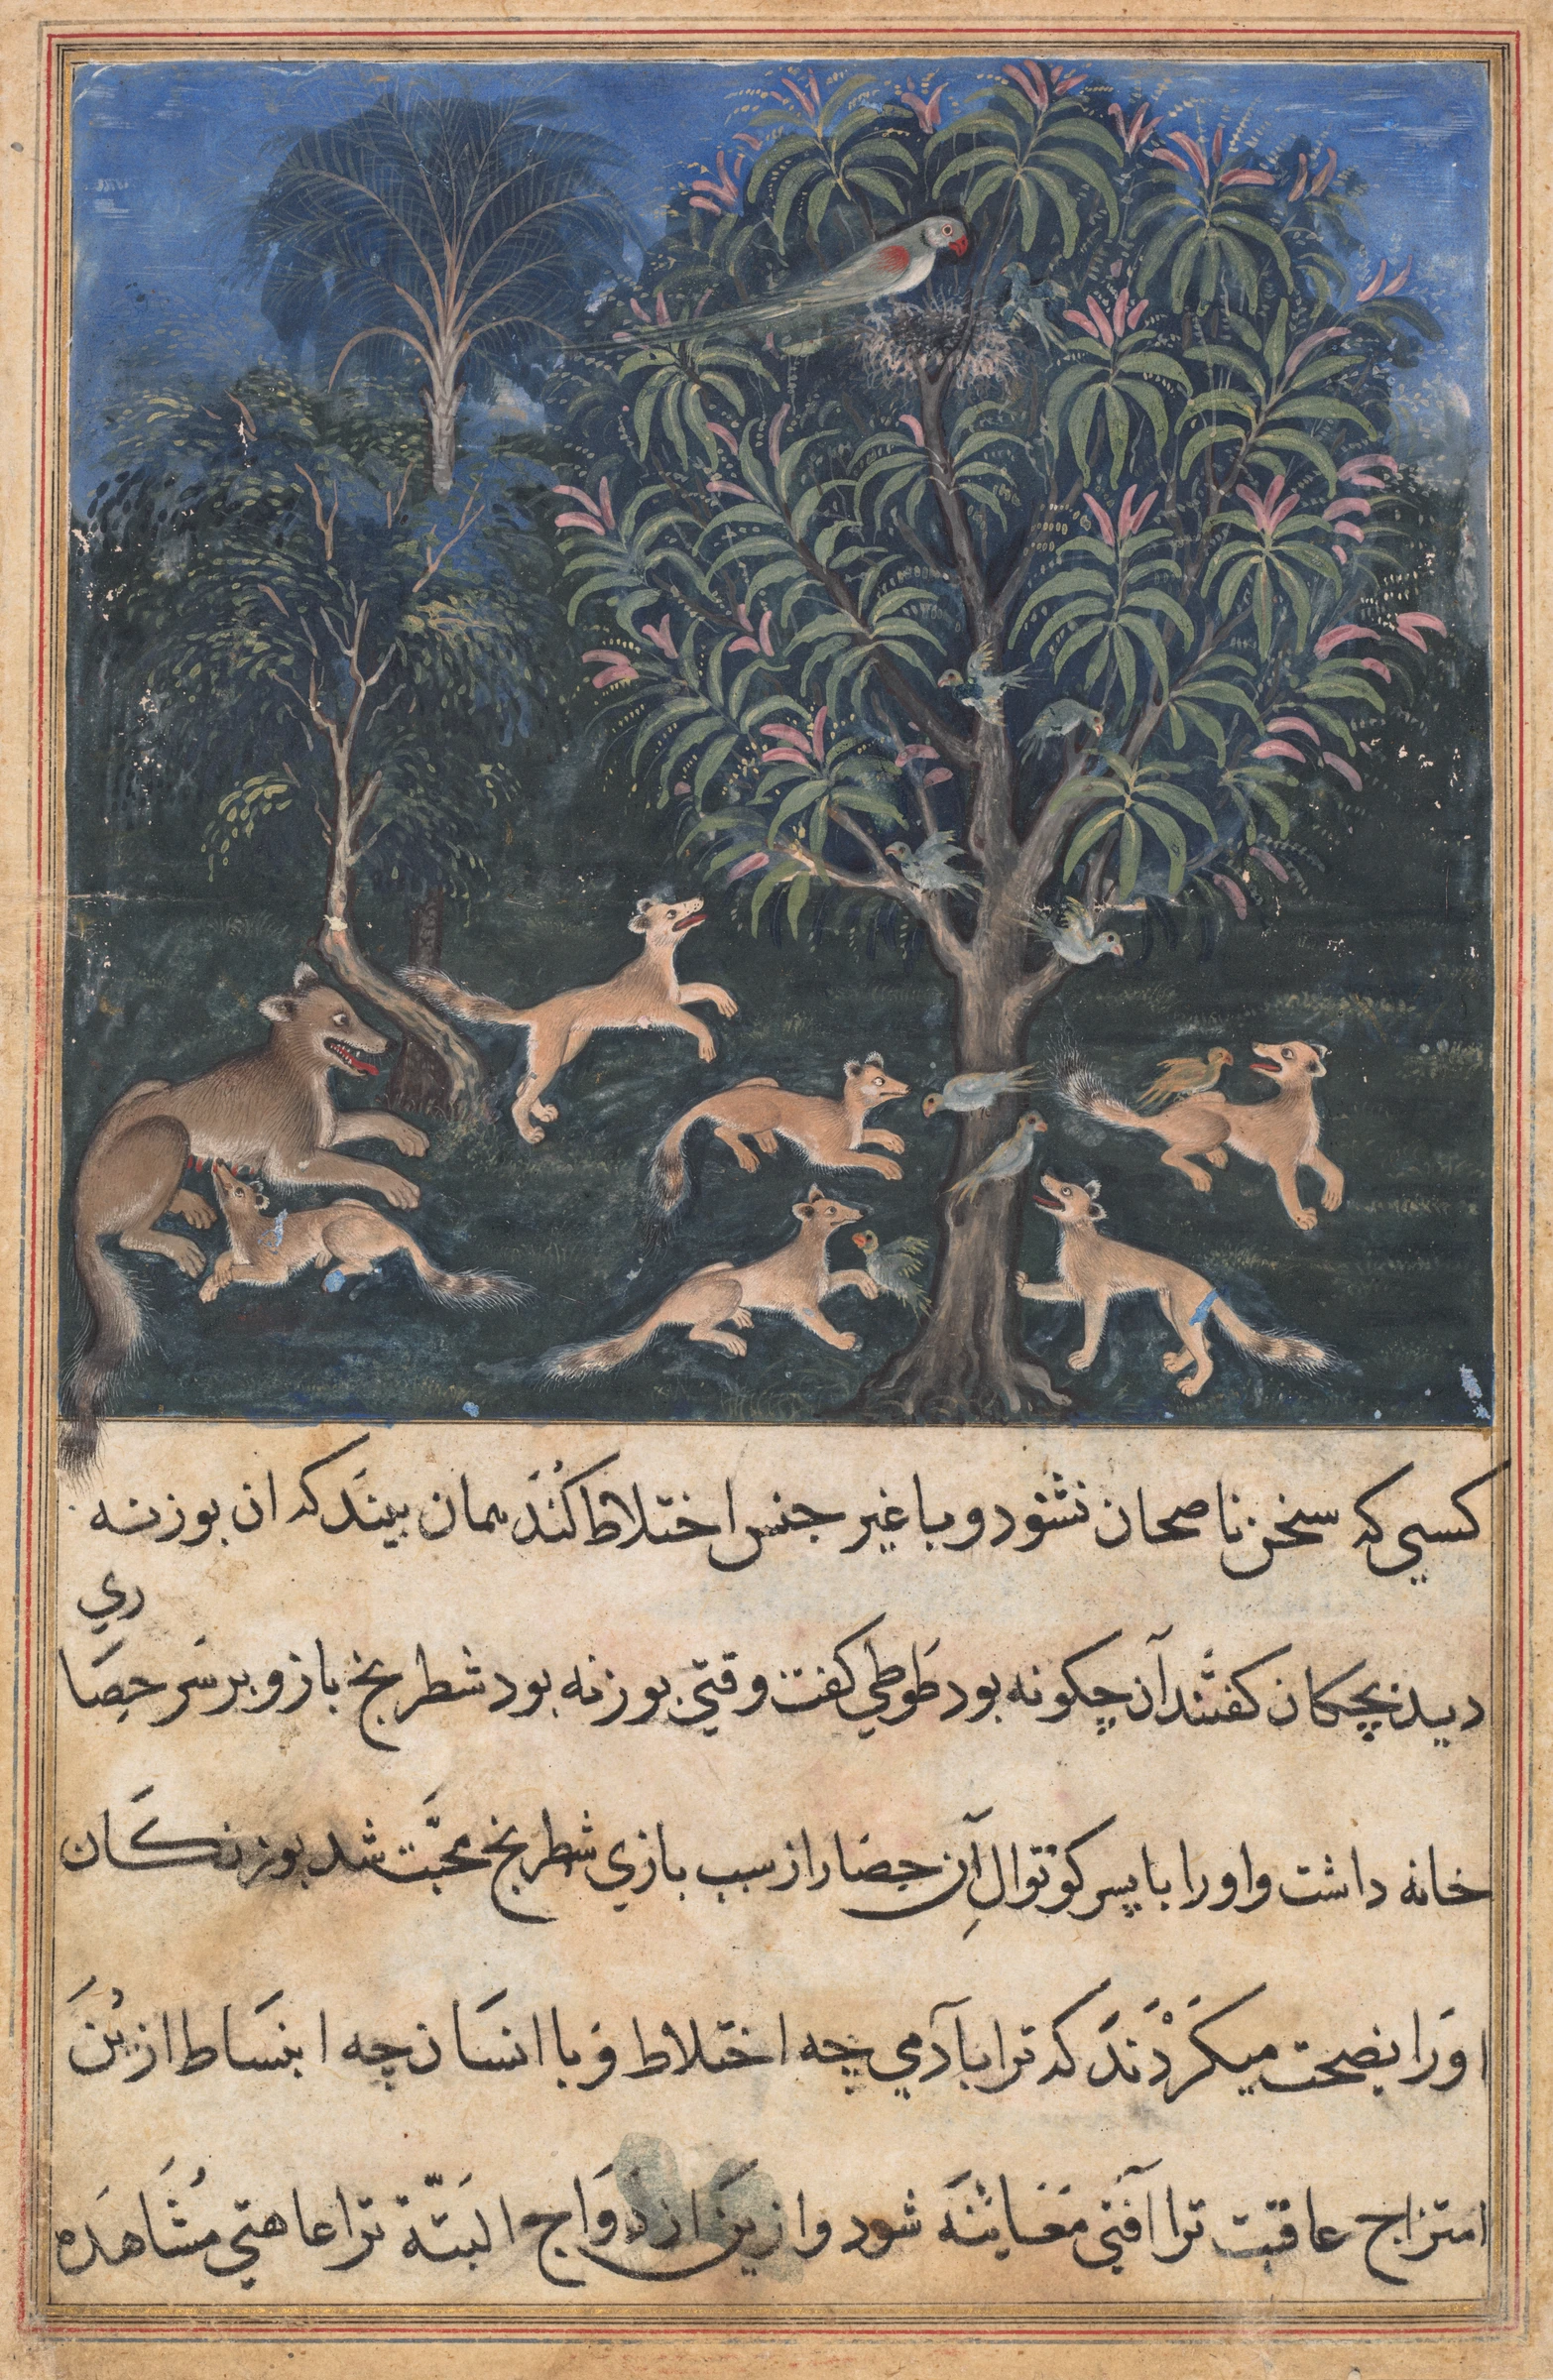 کسي که سخن ناصحان نشنود و با غیر جنس اختلاط کُنَدْ همان بیند که ان بوزنه
دید بچکان کفتند آن چکونه بود طَوطي کفت وقتي بوزنه بود شطرنج باز و بر سَر حِصَا
ري
خانه داشت و اورا با پسر کوتوالِ آن حِصَار از سبب بازي شطرنج محبَّت شد بوزنکَان
اورَا نصحت میکَرْدَندَ که ترا باآدمي چه اختلاط وَ با انسَان چه انبسَاط ازین
امتزاج عاقبت ترا آفتي مَعَاینَه شود و ازین ازدوَاج البَتّه ترا عاهتي مُشَاهدَه